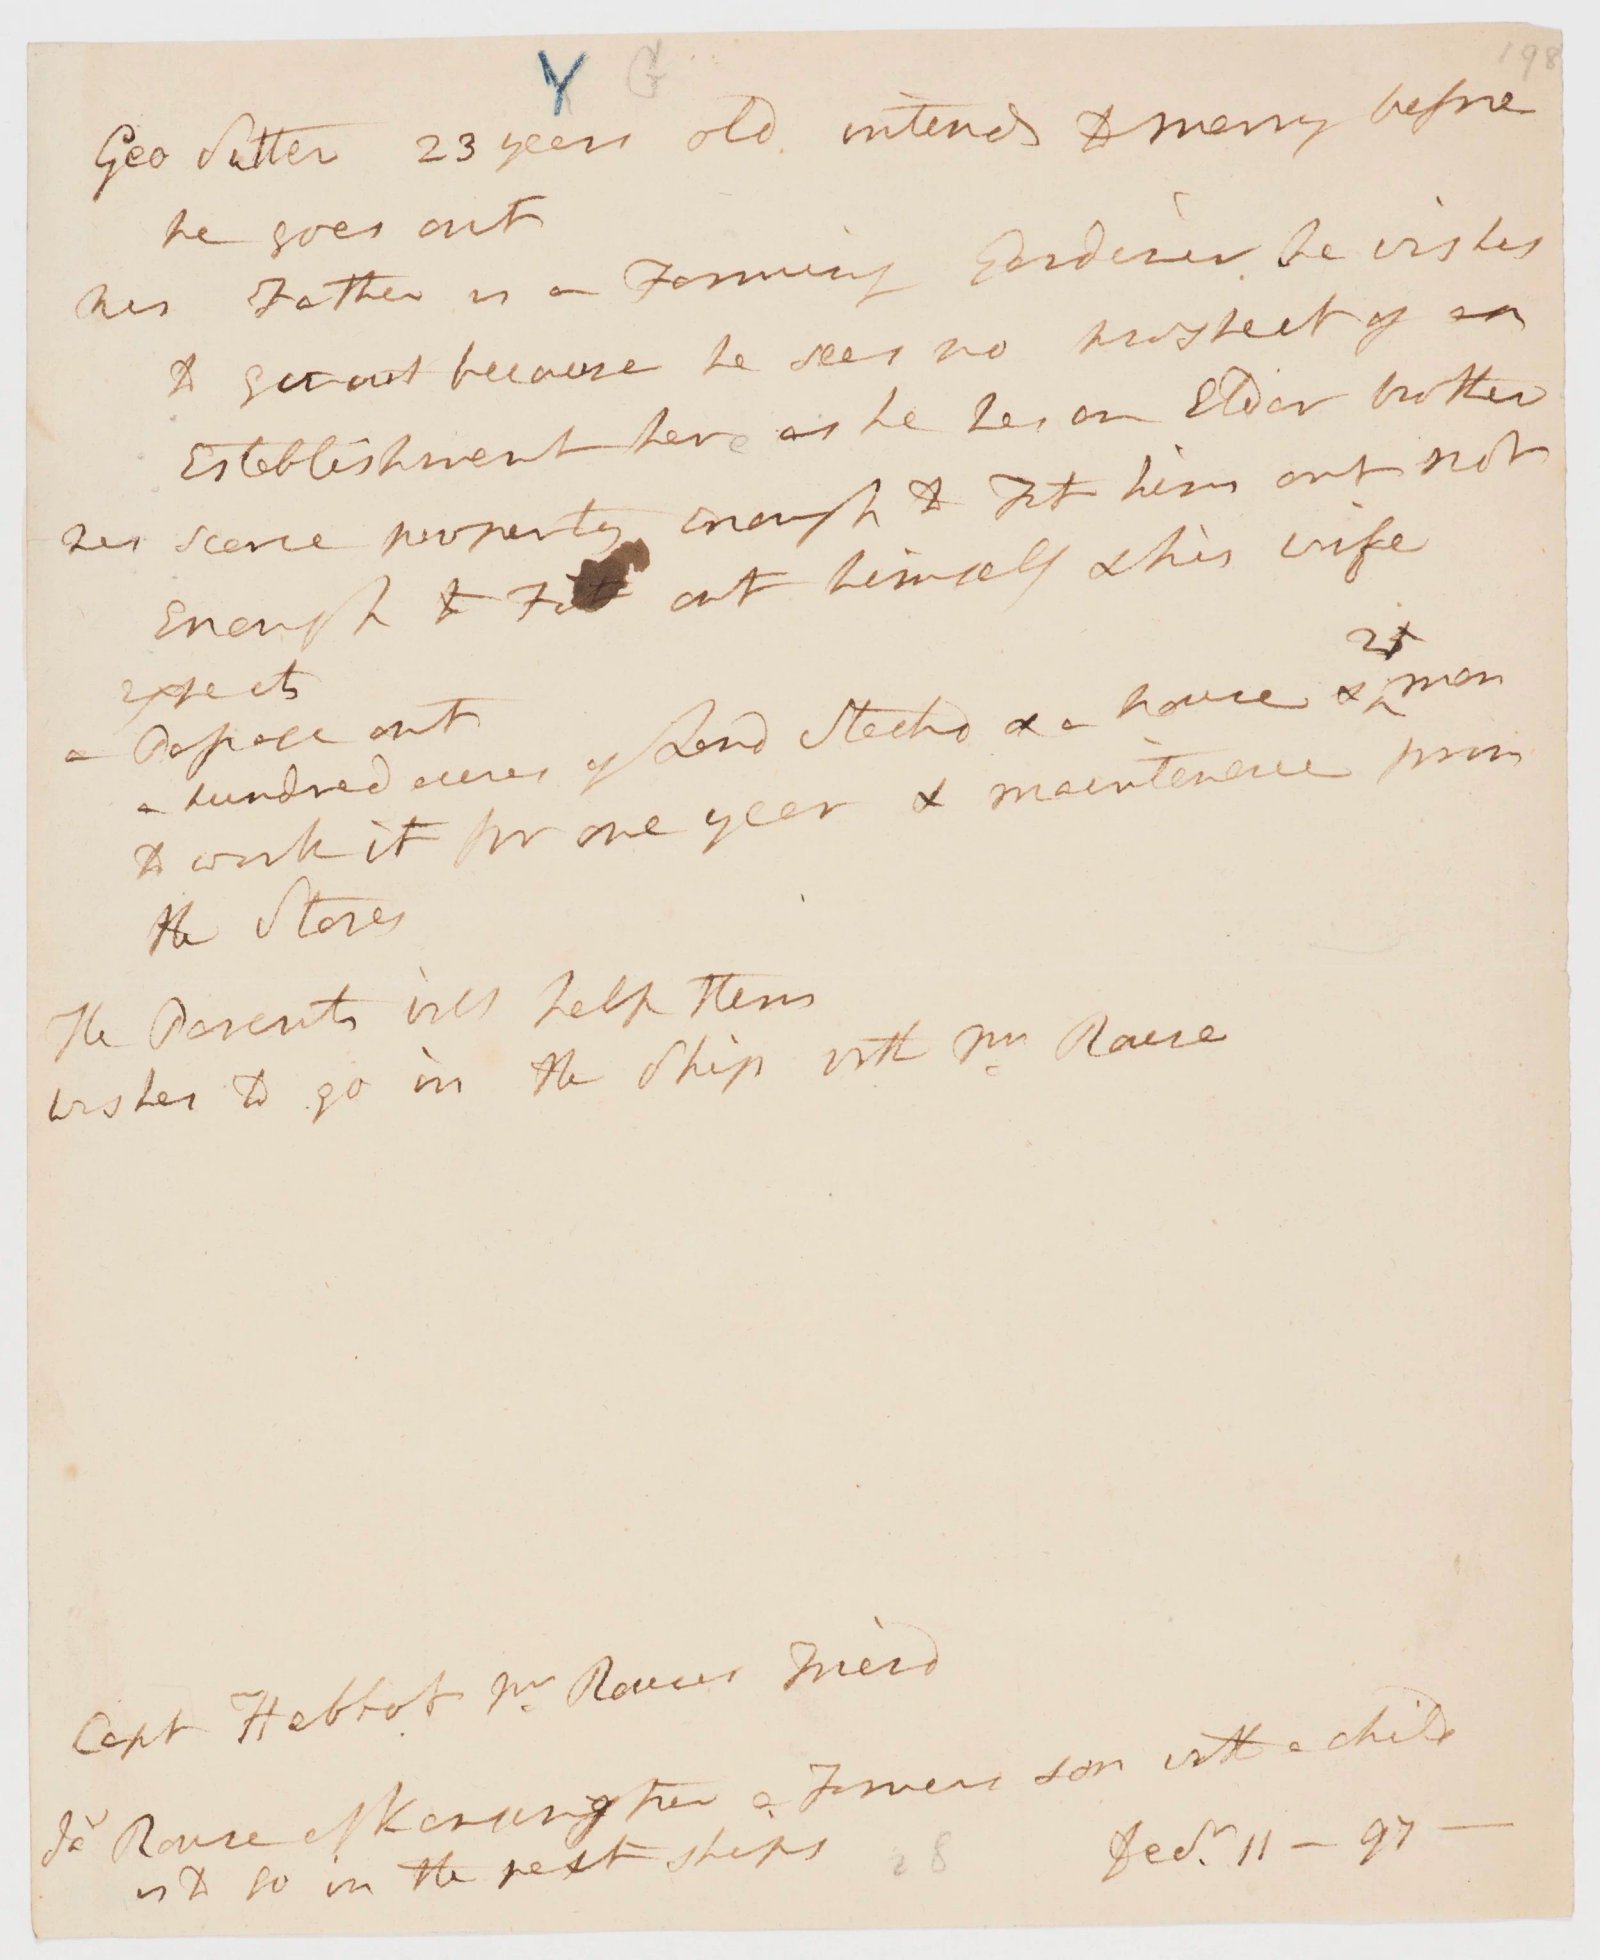 Y G
198
Geo Sutter 23 years old intends to marry before
he goes out
his Father is a Farming Gardiner he wishes
to go out because he sees no prospect of an
Establishment here as he has an Elder brother
has scarce property enough to Fit him out not
Enough to Fit out himself & his wife
expects
a Passage out
a hundred acres of Land Stockd & a house & 2 men
to work it for one year & maintenance from
the Stores
The Parents will help them
wishes to go in the Ship with Mr Rouse
Capt Mr Rouses Friend
Rouse of a Farmers son with a child
is to go in the next ships
28
Decr. 11 — 97 —